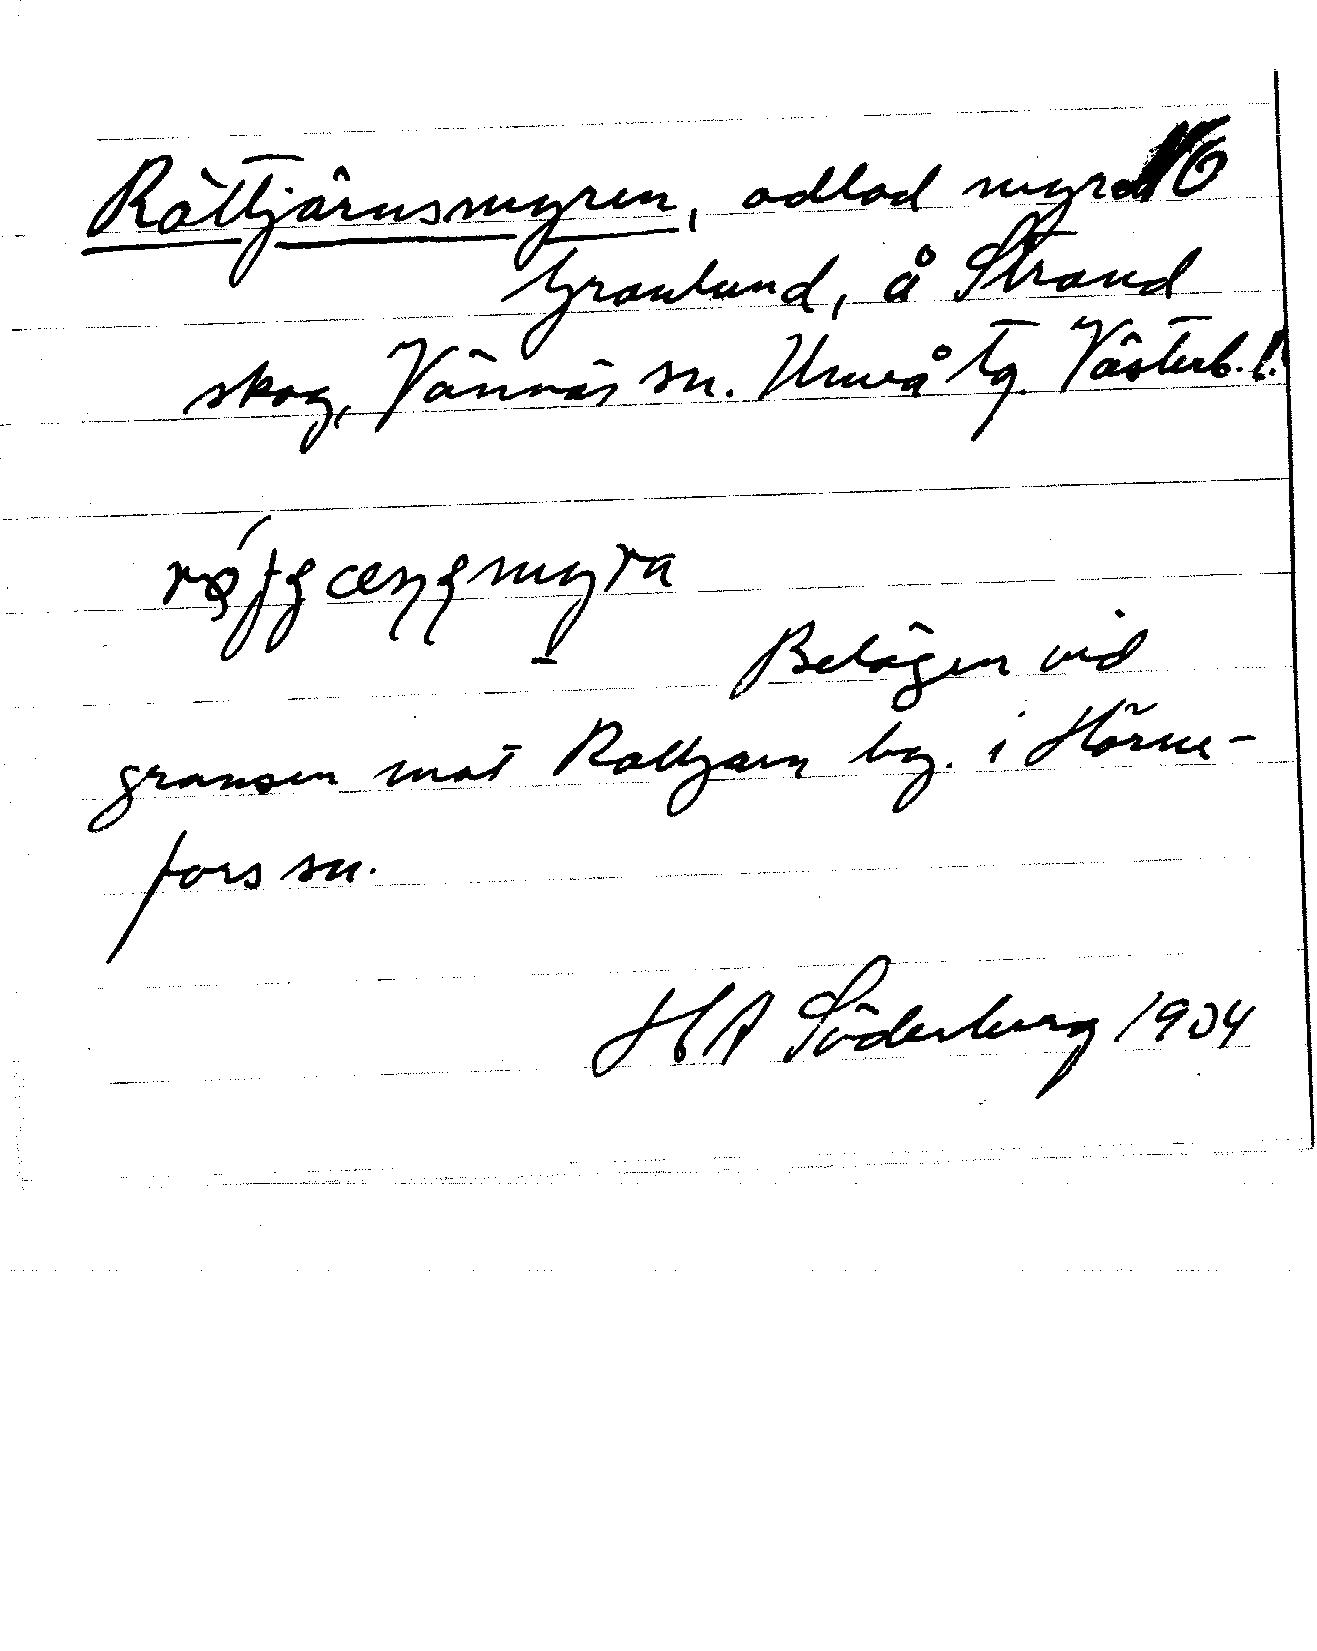 Röttjärnsmyren, odlad myr Ö
Granlund, å Strand
skog, Vännäs sn. Umeå tg. Västerb. l.
Belägen vid
gränsen mot Röttjärn by. i Hörne-
fors sn.
HA Söderberg 1934